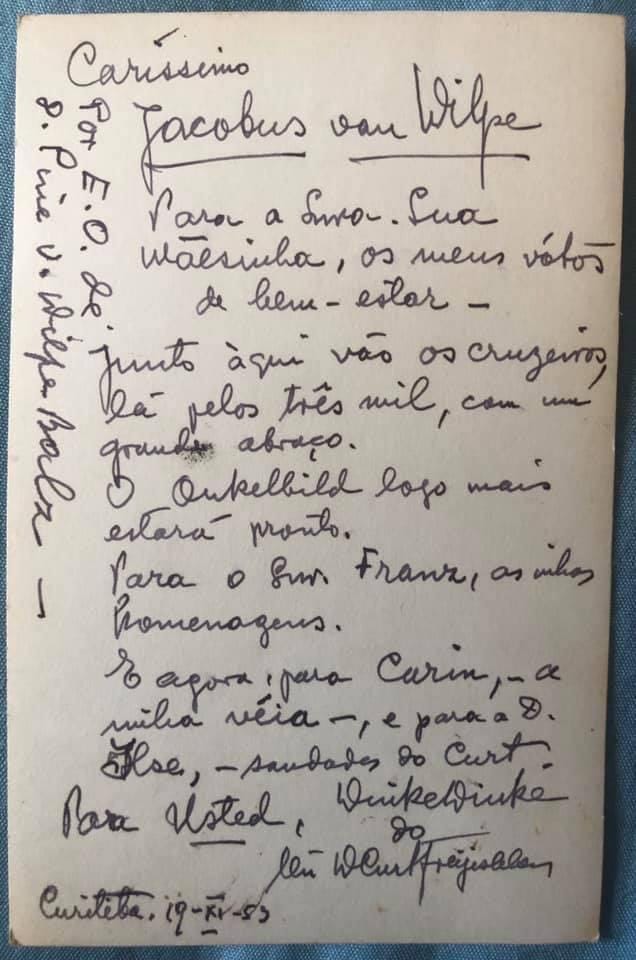 Caríssimo
Jacobus van Wilpe
Para a Snra. Sua
Mãesinha, os meus vótos
de bem-estar —
junto àqui vão os cruzeiros,
lá pelos três mil, com um
grande abraço.
O Onkelbild logo mais
estará pronto.
Para o Snr. Franz, as minhas
homenagens.
E agora, para Carin, - a
minha véia -, e para a D.
Ilse, - saudades do Curt.
Para Usted, WinkeWinke
do
W Curt
Curitiba. 19-XI-53
Por E.O. de
D. v. Wilpe Balz —